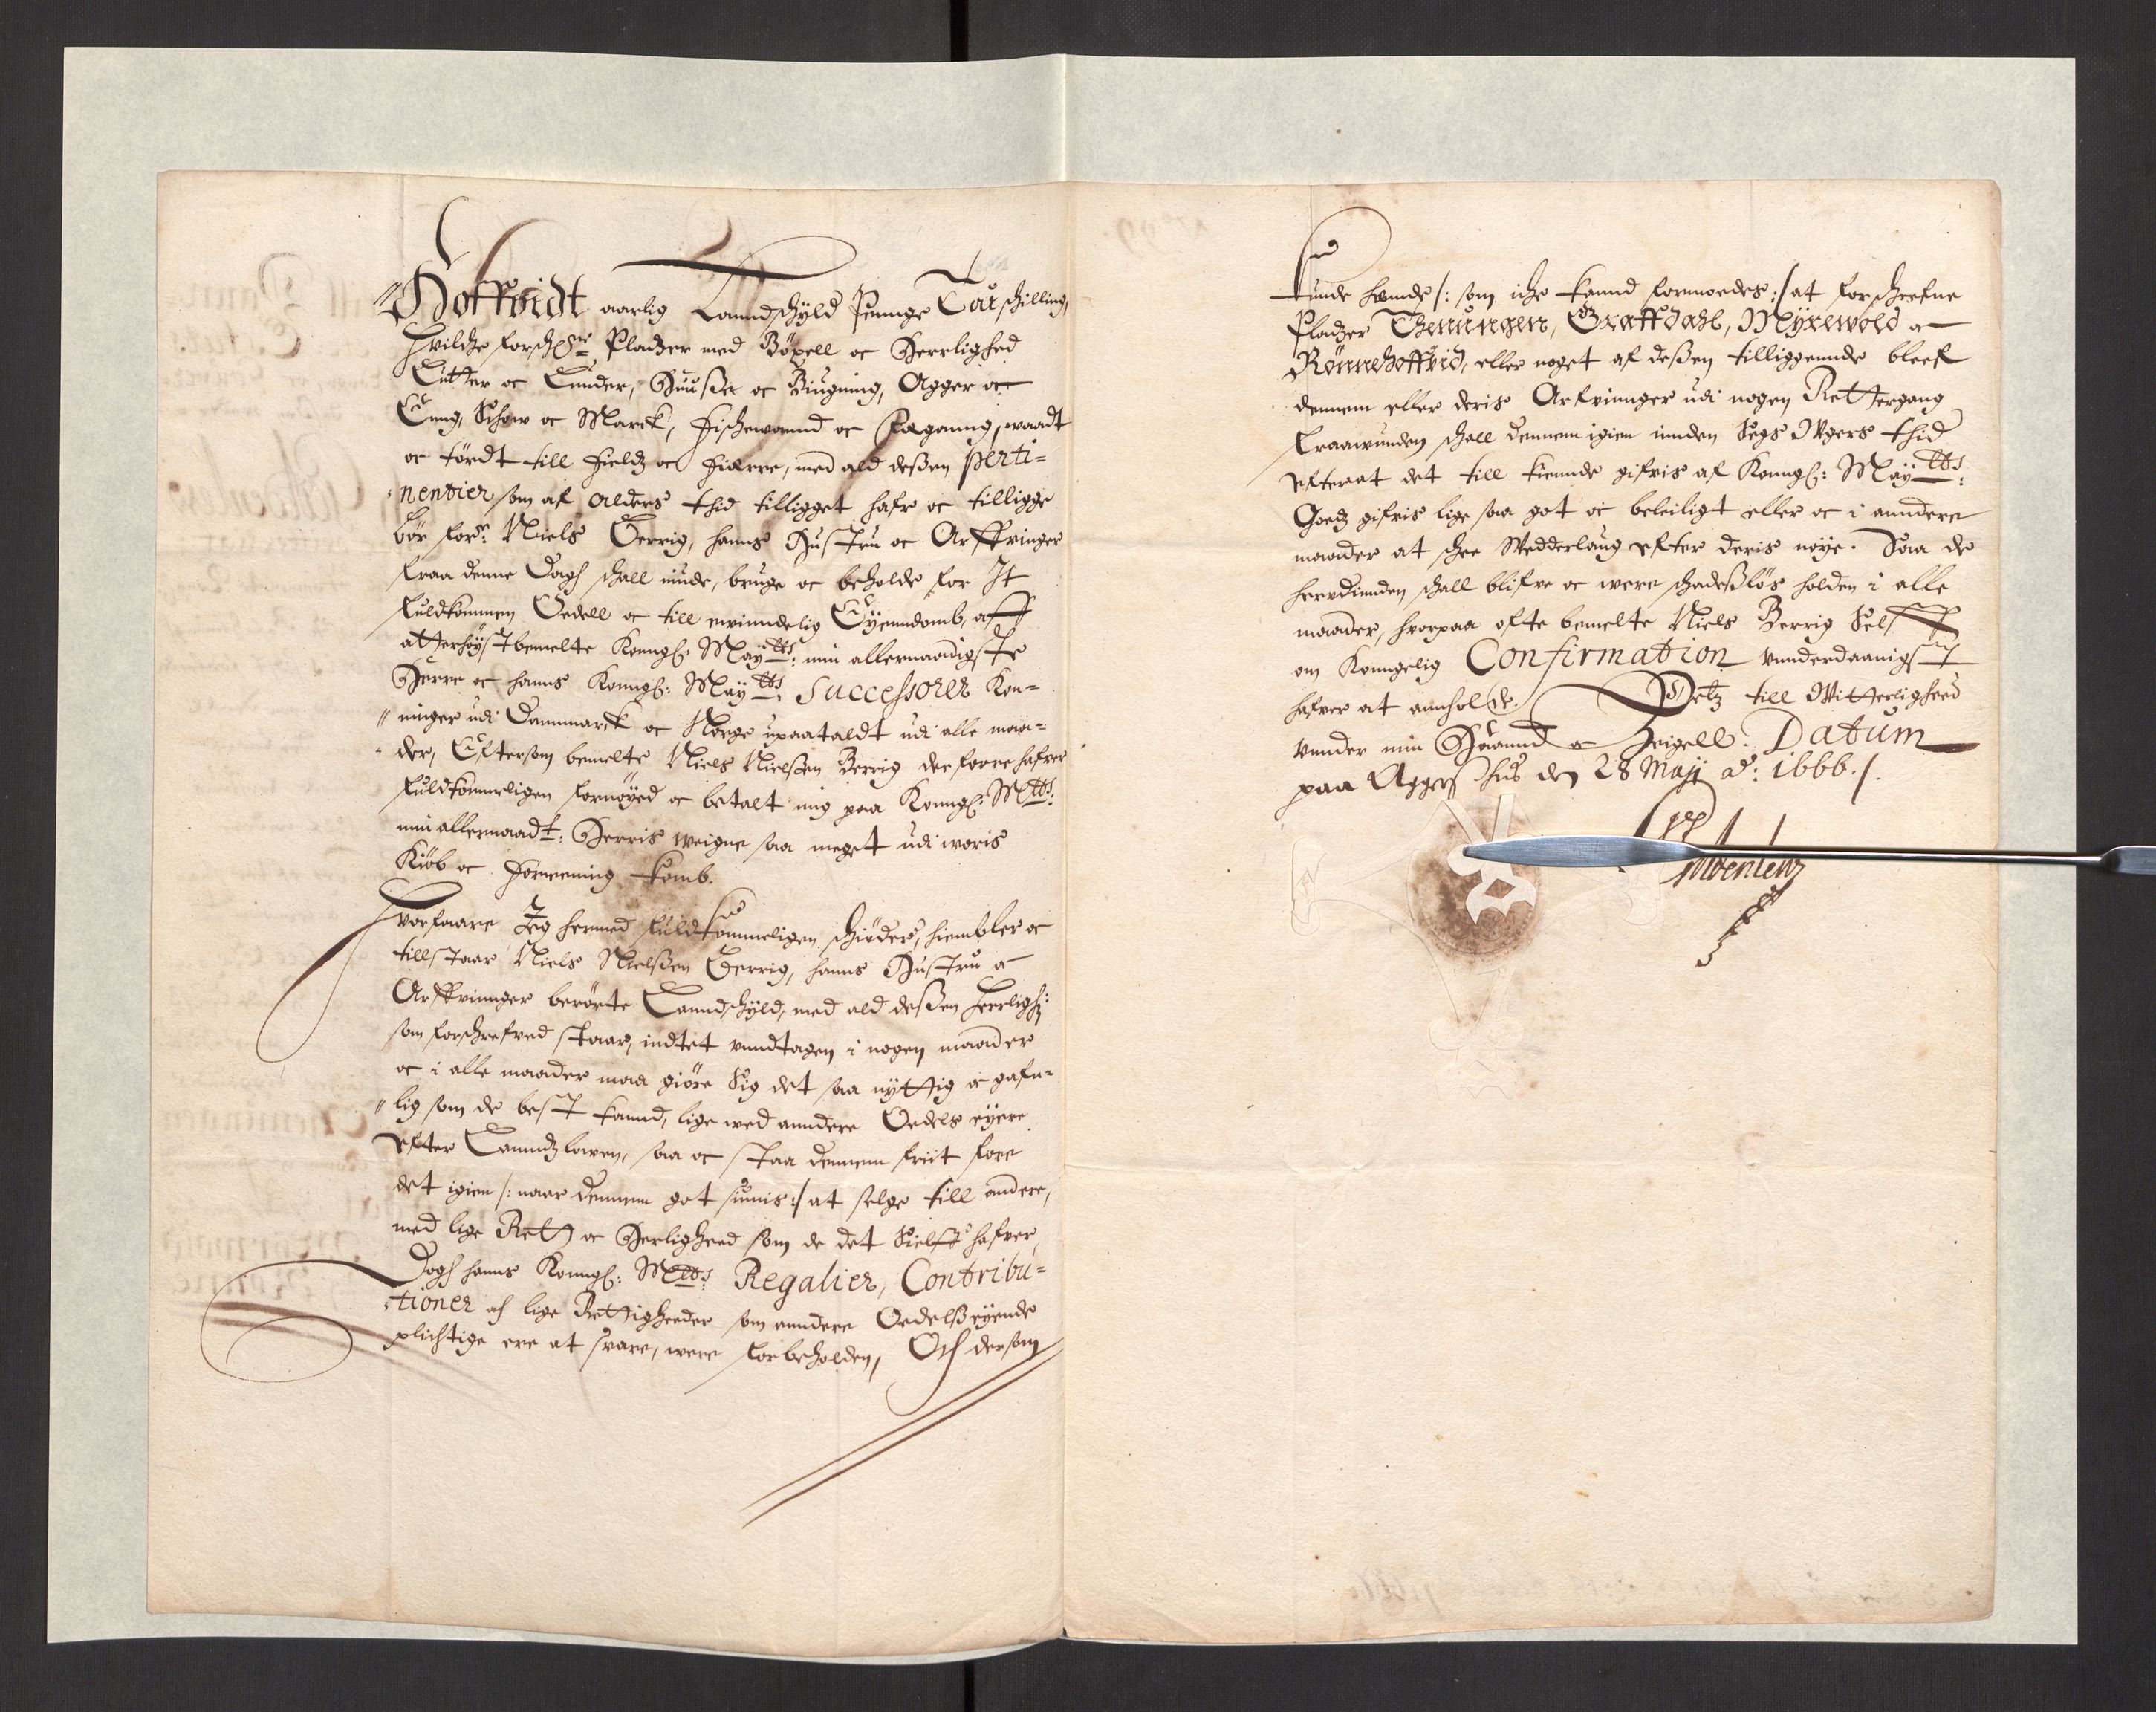 Hoffvidt aarlig Lanndschyld Penninge Tou schilling,
Hvilche forschr.ne Pladtzer med Böxell oc Herrlighed
Lutter oc Lunder, Huusse oc Biugning, Agger oc
Eng, Schow oc Marck, Fischewannd oc Fæganng, waadt
oc tördt till Fieldz oc Fiærre, med ald dessen perti=
nentier som af Alders thid tilligget hafr oc tilligge
bör for.ne Niels Berrig, hanns Hustru oc Arffvinger
fraa denne Dagh schall niude, bruge oc beholde for It
fuldkommen Oedell oc till ewinndelig Eyenndomb, aff
alt höystbemelte Konngl: May:tts: min allernaadigste
Herre oc hanns Konngl: May:tts: Successorer Kon=
ninger udi Danmarck oc Norge upaataldt udi alle maa=
der, Efftersom bemelte Niels Nielssen Berrig derforre hafver
fuldkommeligen fornöyed oc betalt mig paa Konngl: M:tts:
min allernaad:t: Herris weigne saa meget udi woris
Kiöb oc Forreening komb.
Hvorfaare Jeg hermed fuldkommeligen schiöder, hiembler oc
tillstaar Niels Nielssen Berrig, hanns Hustru oc
Arffvinnger berörte Lanndschyld, med ald dessen Herrligh:
som forschrefved staar, indtet unndtagen i nogen maader
oc i alle maader maa giöre Sig det saa nyttig oc gafn=
lig som de best kannd, lige wed anndere Oedels eyere
efter Lanndzlowen, saa oc staa dennem friit fore
det igien /: naar dennem got siunis :/ at selge till andere,
med lige Rett oc Herligheed som de det Sielff hafver,
Dogh hanns Konngl: M:tts: Regalier, Contribu=
tioner oc lige Rettigheeder som anndere Oedelsseyende
plichtige ere at svare, were forbeholden, Och dersom
kunde hennde /: som iche kannd formoedes :/ at forschrefne
Pladtzer Gravffdahl, Myxewold oc
Rönnehoffvid, eller noget af dessen tilliggennde blef
dennem eller deris Arfvinnger udi nogen Rettergang
fraawunden schall dennem igien innden Sex Ugers thid
efterat det till kiennde gifvis af Konngl: May:tts:
Goedz gifvis lige saa got oc beleiligt eller oc i anndere
maader at schee Wedderlaug efter deris nöye. Saa de
herudinnden schall blifve oc were schadesslös holden i alle
maader, hvorpaa ofte bemelte Niels Berrig Self
om Konngelig Confirmation unnderdaanigst
hafver at annholde. Detz till Witterligheed
unnder min Haannd oc Zeigell. Datum
paa Aggershus den 28 Maji A:o 1666./.